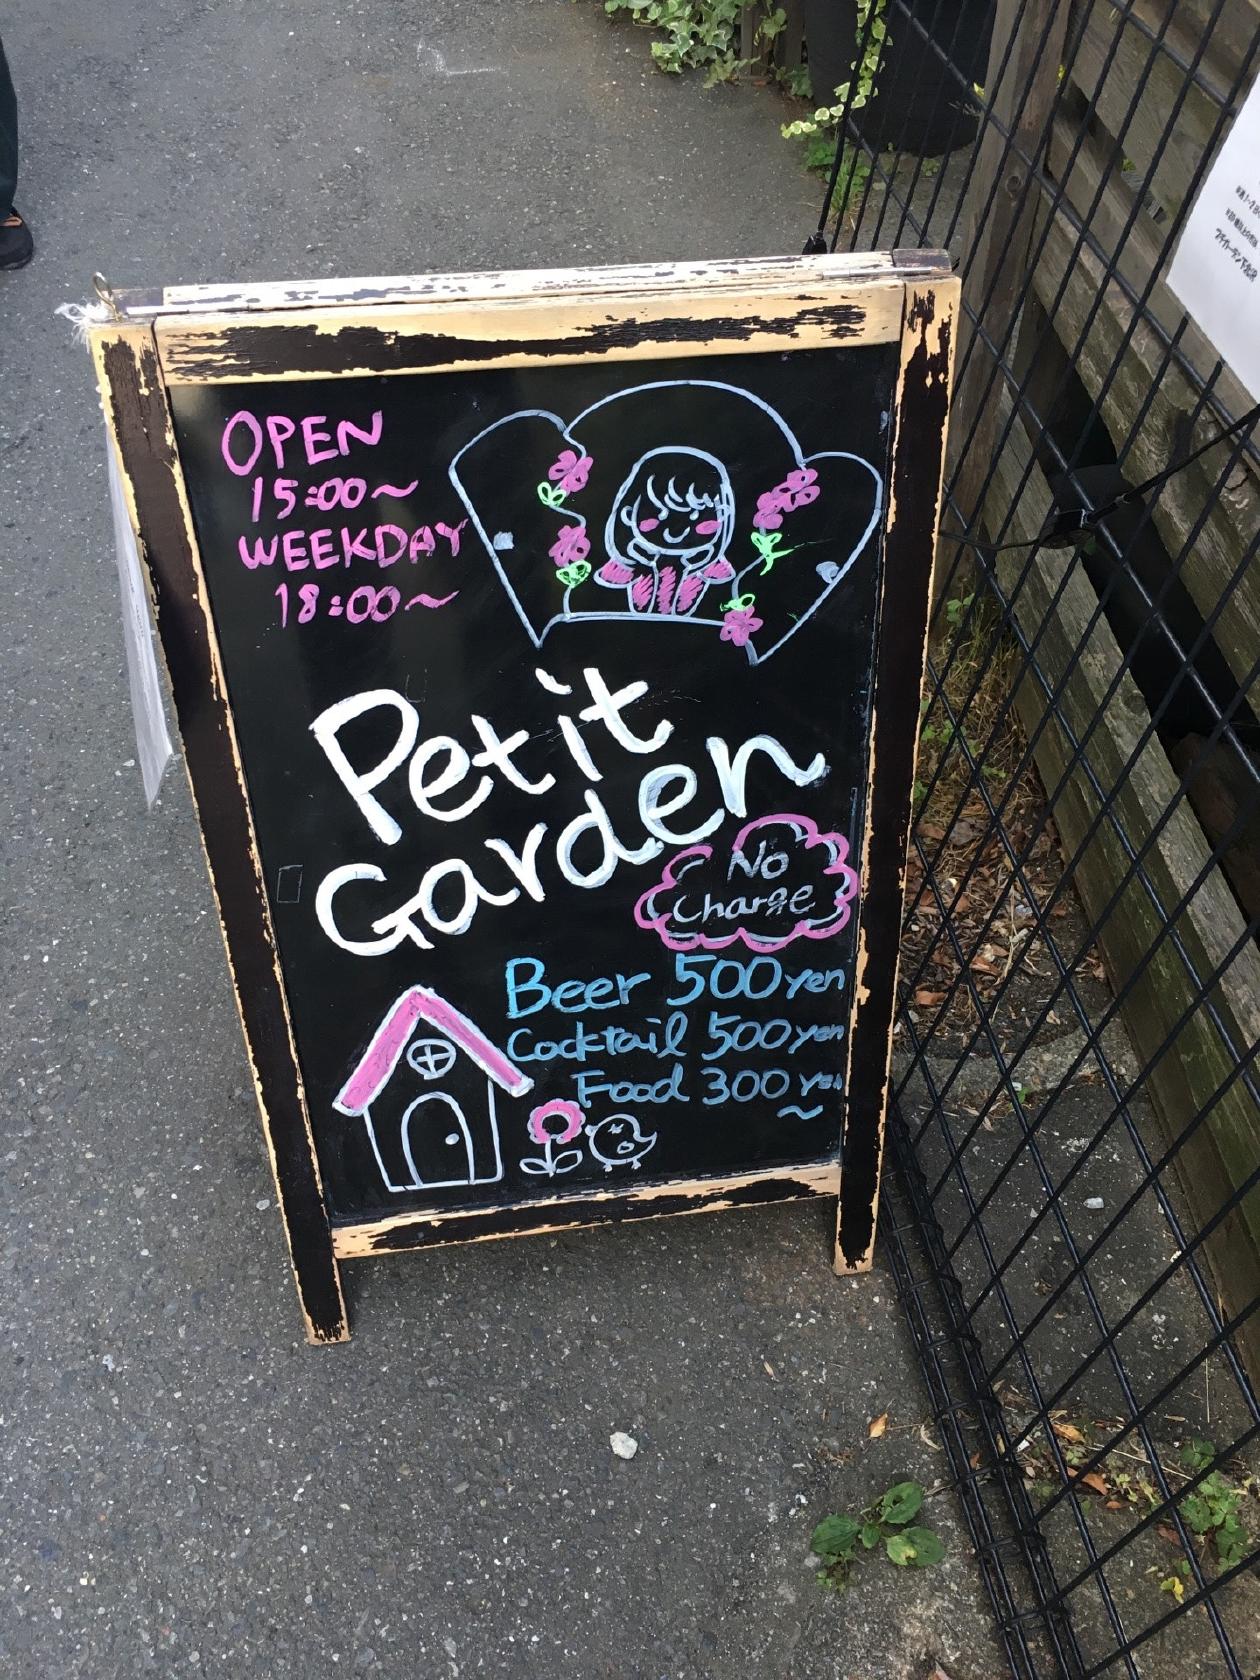 OPEN
15:00~
WEEKDAY
18:00~
Petit
Garden
No
Charge
Beer 500yen
Cocktail 500yen
Food 300yen
~